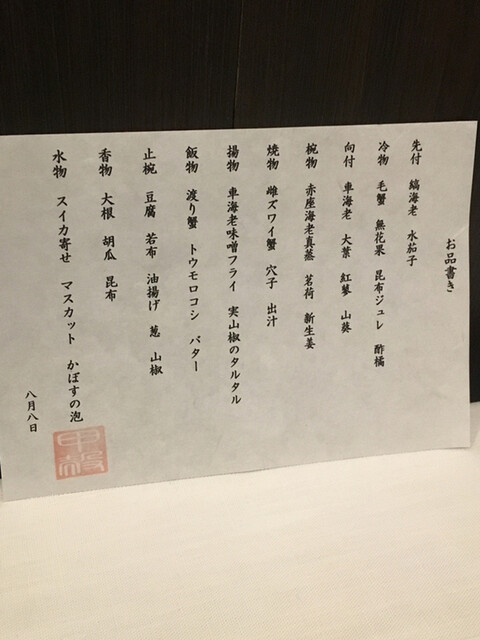 お品書き
先付 縞海老 水茄子
冷物 毛蟹 無花果 昆布ジュレ 酢橘
向付 車海老 大葉 紅蓼 山葵
椀物 赤座海老真蒸 茗荷 新生姜
焼物 雌ズワイ蟹 穴子 出汁
揚物 車海老味噌フライ 実山椒のタルタル
飯物 渡り蟹 トウモロコシ バター
止椀 豆腐 若布 油揚げ 葱 山椒
香物 大根 胡瓜 昆布
水物 スイカ寄せ マスカット かぼすの泡
八月八日
甲殻